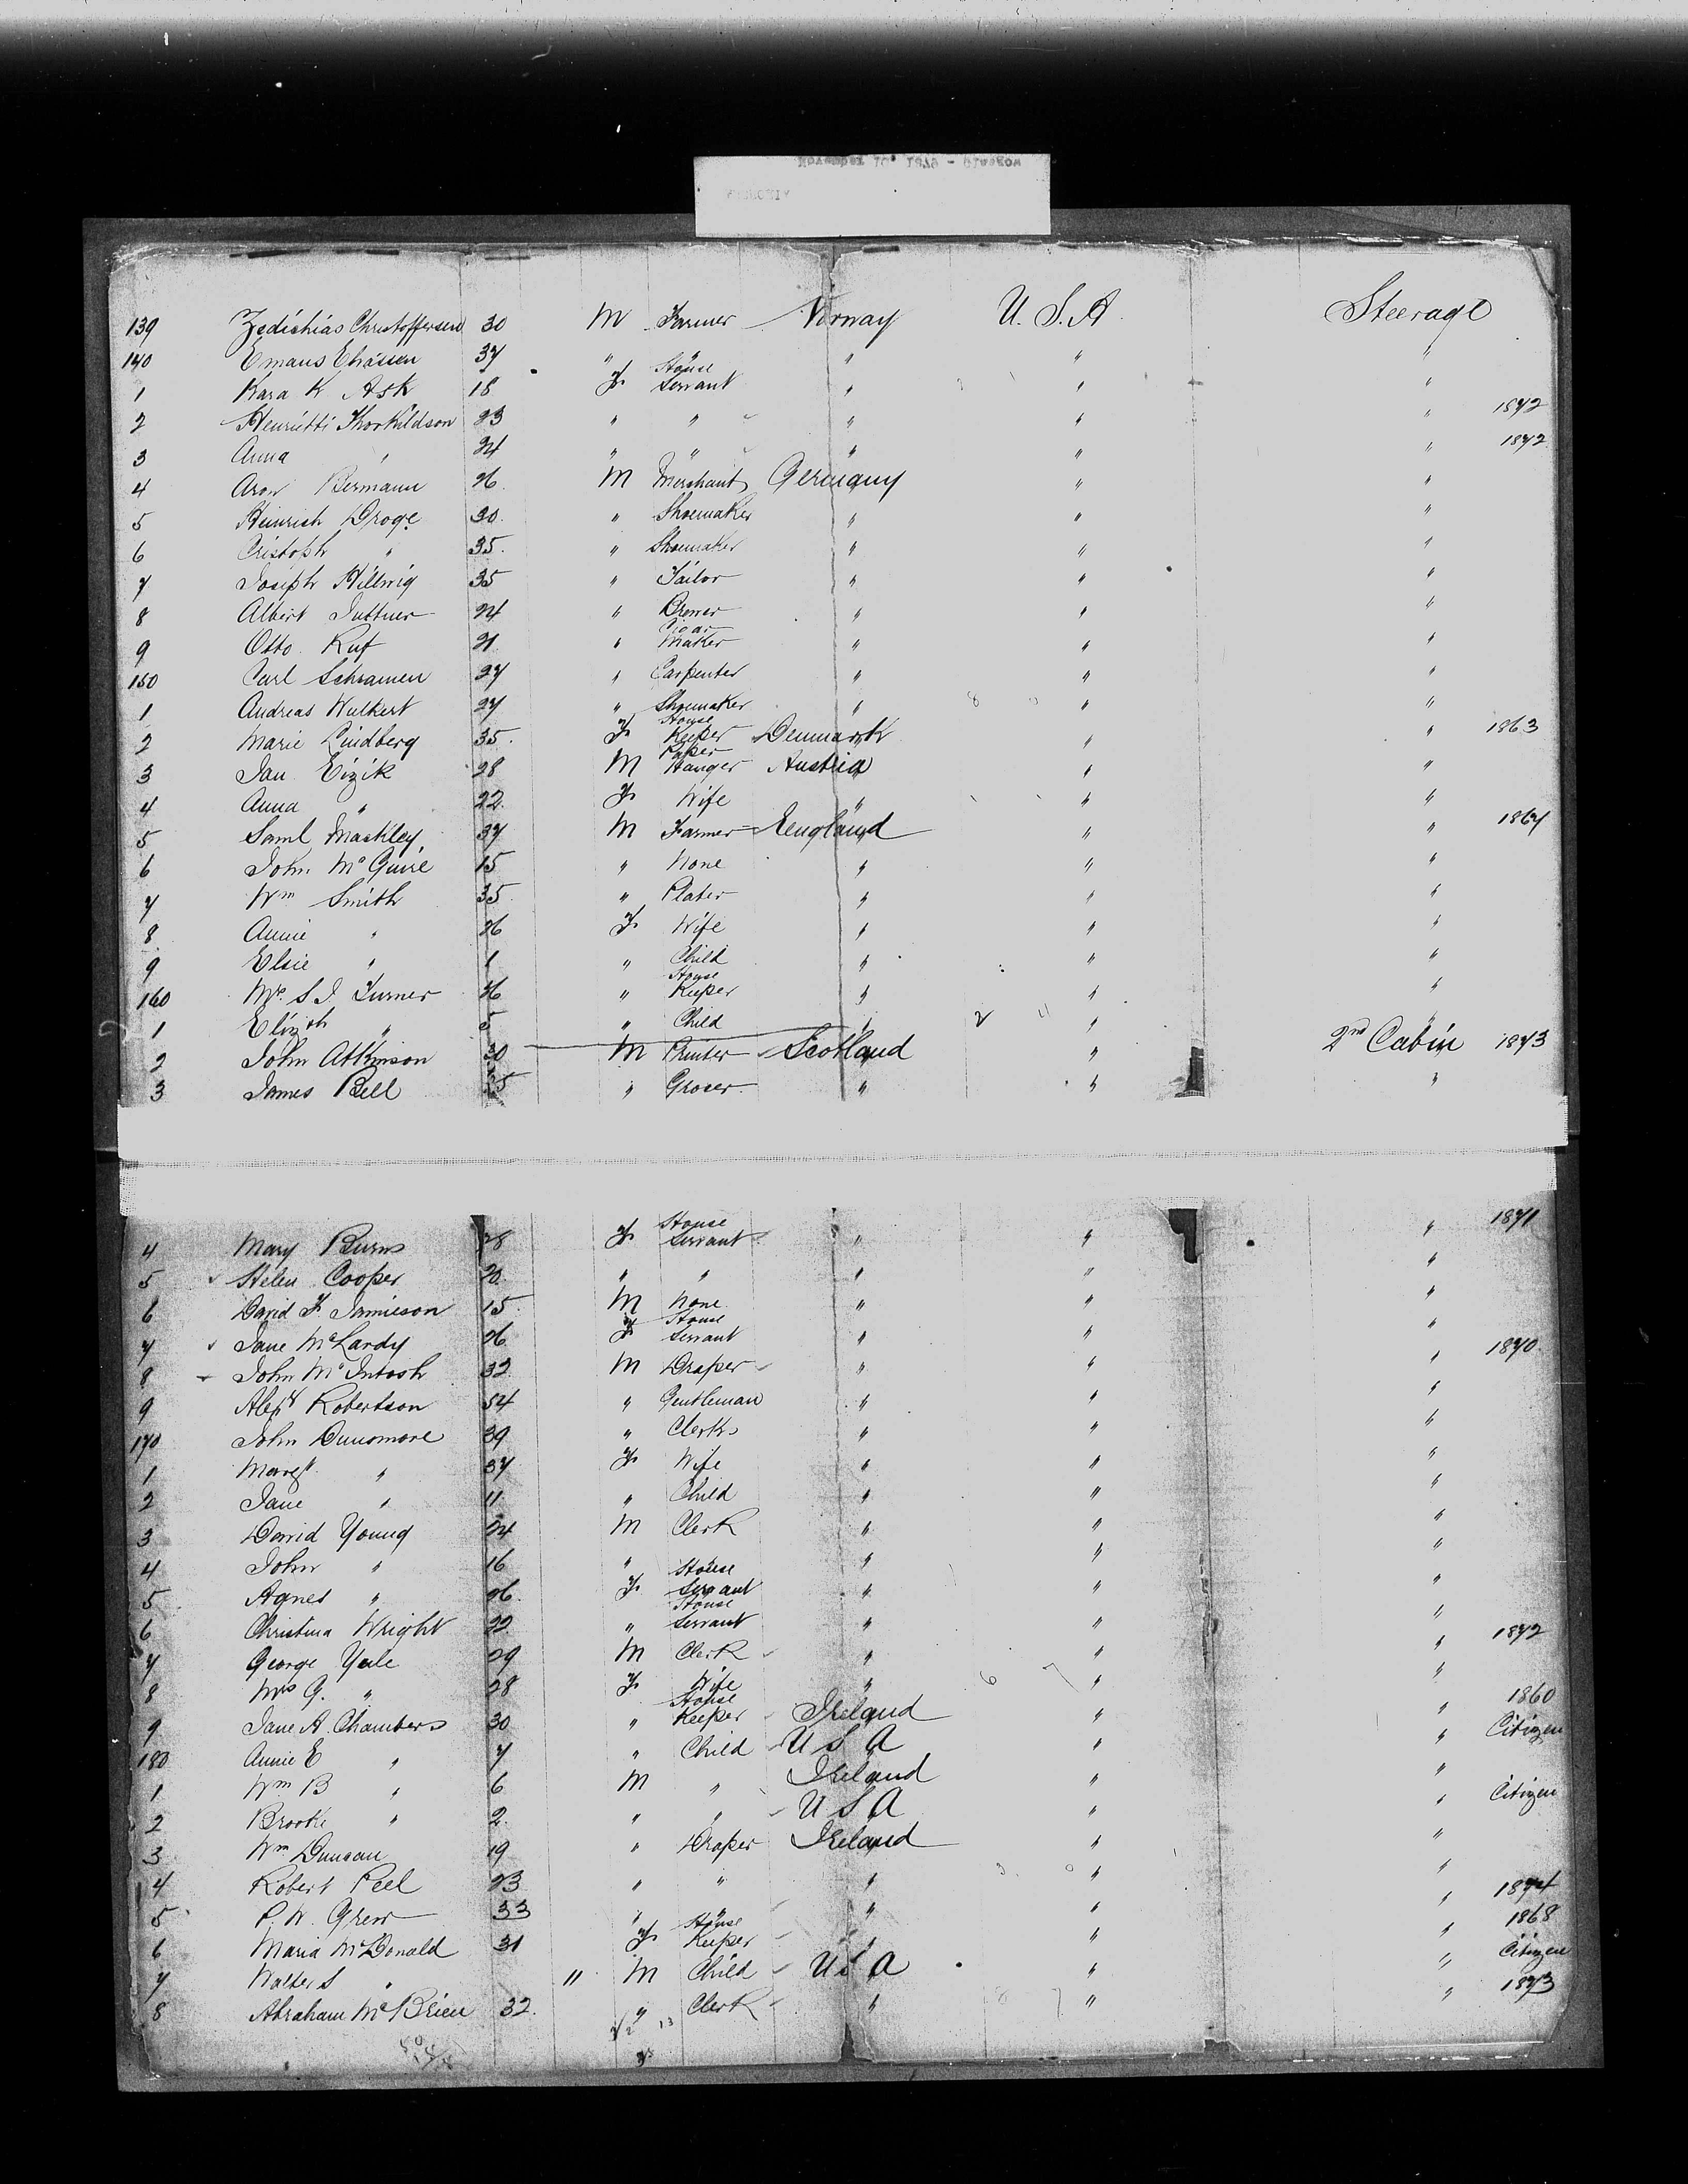 139 Zedichias Christoffersen 30 M Farmer Norway U.S.A. Steerage
140 Emaus Eliassen 37 " " " " "
1 Kara K Ask 18 F House Servant " " "
2 Henrietti Thorkildson 23 " " " " " 1872
3 Anna " 24 " " " " " 1872
4 Aron Bermann 26 M Merchant Germany " "
5 Heinrich Droge 30 " Shoemaker " " "
6 Cristoph " 35 " Shoemaker " " "
7 Joseph Hillwig 35 " Tailor " " "
8 Albert Juttner 24 " Brewer " " "
9 Otto Ruf 21 " Cigar Maker " " "
150 Carl Schramen 27 " Carpenter " " "
1 Andreas Wulkert 27 " Shoemaker " " "
2 Marie Lindberg 35 F House Keeper Denmark " " 1863
3 Jan Eizik 28 M Paper Hanger Austria " "
4 Anna " 22 F Wife " " "
5 Saml Mackley 37 M Farmer England " " 1867
6 John McGuire 15 " None " " "
7 Wm Smith 35 " Plater " " "
8 Annie " 26 F Wife " " "
9 Elsie " 1 " Child " " "
160 Mrs S.J. Turner 26 " House Keeper " " "
1 Elizth " 5 " Child " " "
2 John Atkinson 30 M Printer Scotland " 2nd Cabin 1873
3 James Bell 25 " Grocer " " "
4 Mary Burns 28 F House Servant " " " 1871
5 Helen Cooper 20 " " " " "
6 David F. Jamieson 15 M None " " "
7 Jane McLardy 26 F House Servant " " "
8 John McIntosh 32 M Draper " " " 1870
9 Alexr Robertson 54 " Gentleman " " "
170 John Dunsmore 39 " Clerk " " "
1 Margt " 37 F Wife " " "
2 Jane " 11 " Child " " "
3 David Young 24 M Clerk " " "
4 John " 16 " " " " "
5 Agnes " 26 F House Servant " " "
6 Christina Wright 22 " House Servant " " "
7 George Yule 29 M Clerk " " " 1872
8 Mrs G. " 28 F Wife " " "
9 Jane A. Chambers 30 " House Keeper Ireland " " 1860
180 Annie E " 7 " Child U S A " " Citizen
1 Wm B " 6 M " Ireland " "
2 Brooke " 2 " " U S A " " Citizen
3 Wm Duncan 19 " Draper Ireland " "
4 Robert Peel 23 " " " " "
5 P. W. Grew 33 " " " " " 1874
6 Maria McDonald 31 F House Keeper " " " 1868
7 Walter S " 11 M Child U S A " " Citizen
8 Abraham McBrien 32 " Clerk " " " 1873